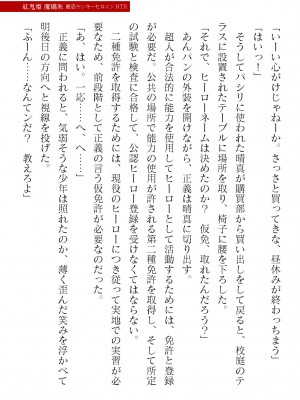 紅鬼姫 瑠璃朱 最恐ヤンキーヒロインNTR
「いーい心がけじゃねーか。さっさと買ってきな、昼休みが終わっちまう」
「はいっ！」
そうしてパシリに使われた晴真が購買部から買い出しをして戻ると、校庭のテ
ラスに設置されたテーブルに場所を取り、椅子に腰を下ろした。
「それで、ヒーローネームは決めたのか？　仮免、取れたんだろう？」
あんパンの外装を開けながら、正義は晴真に切り出す。
超人が合法的に能力を使用してヒーローとして活動するためには、免許と登録
が必要だ。公共の場所で能力の使用が許される第二種免許を取得し、そして所定
の試験と検査に合格して、公認ヒーロー登録を受けなくてはならない。
二種免許を取得するためには、現役のヒーローにつき従って実地での実習が必
要なため、前段階として正義の言う仮免許が必要なのだった。
「あ、はい。一応……へ、へへ……」
正義に問われると、気弱そうな少年は照れたのか、薄く歪んだ笑みを浮かべて
明後日の方向へと視線を投げた。
「ふーん……なんてンだ？　教えろよ」